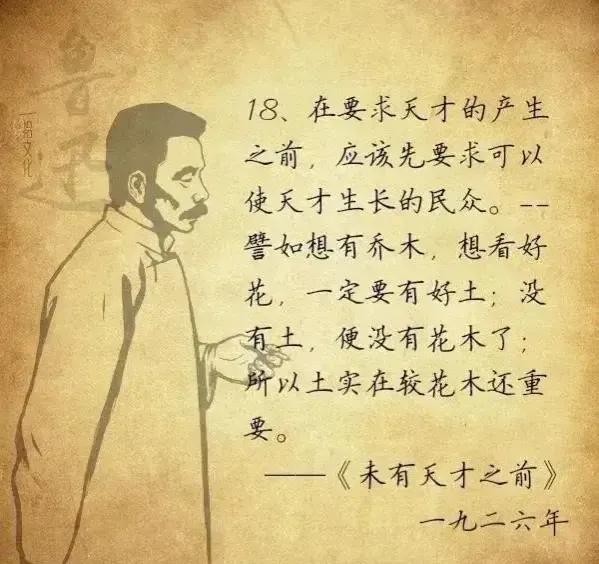 鲁迅
语文化
18、在要求天才的产生
之前，应该先要求可以
使天才生长的民众。--
譬如想有乔木，想看好
花，一定要有好土；没
有土，便没有花木了；
所以土实在较花木还重
要。
——《未有天才之前》
一九二六年